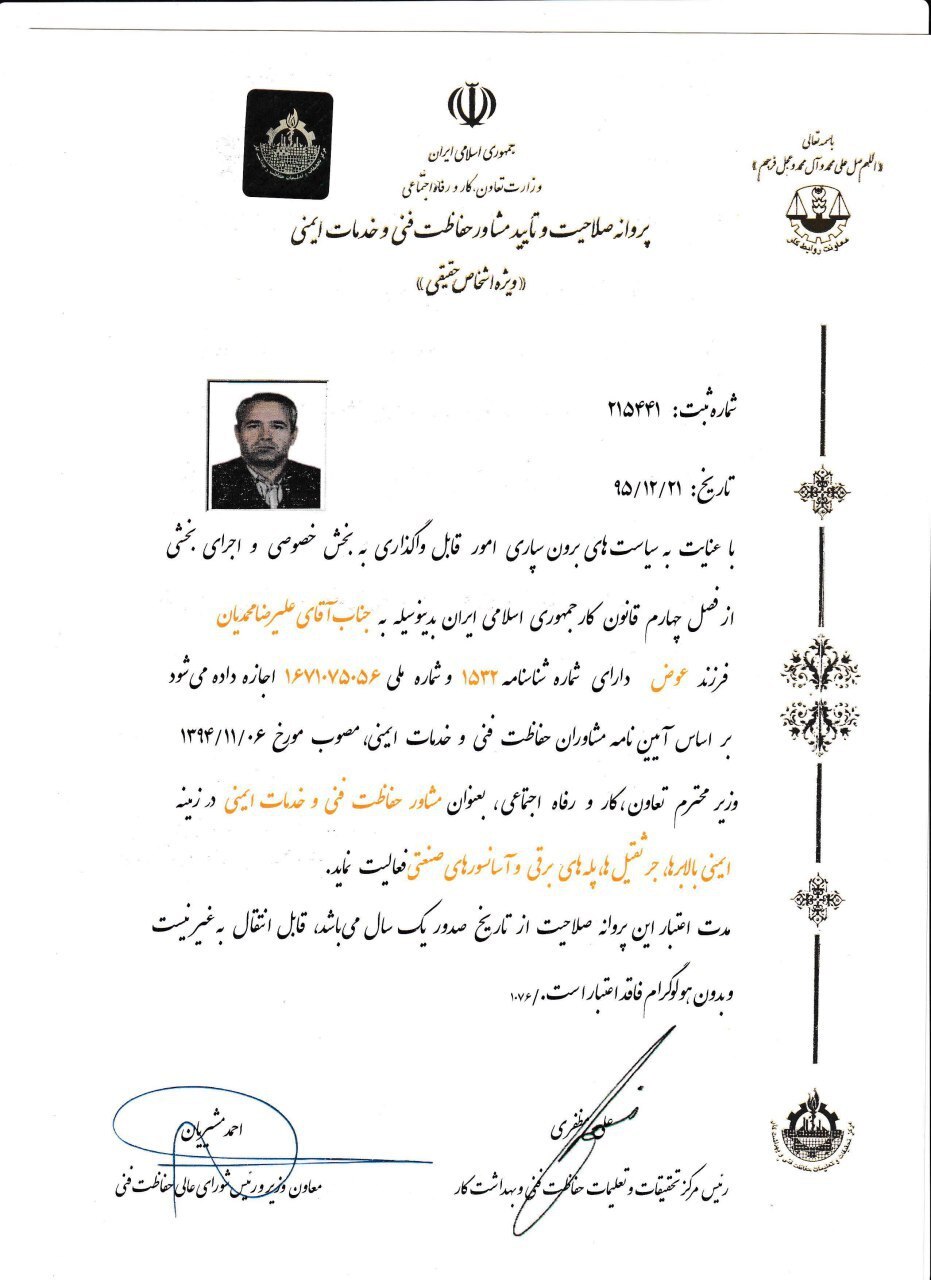 باسمه تعالی
«اللهم صل علی محمد و آل محمد و عجل فرجهم»
معاونت روابط کار
جمهوری اسلامی ایران
وزارت تعاون، کار و رفاه اجتماعی
پروانه صلاحیت و تأیید مشاور حفاظت فنی و خدمات ایمنی
«ویژه اشخاص حقیقی»
شماره ثبت: ۲۱۵۴۴۱
تاریخ: ۹۵/۱۲/۲۱
با عنایت به سیاست های برون سپاری امور قابل واگذاری به بخش خصوصی و اجرای بخشی
از فصل چهارم قانون کار جمهوری اسلامی ایران بدینوسیله به جناب آقای علیرضا محمدیان
فرزند عوض دارای شماره شناسنامه ۱۵۳۲ و شماره ملی ۱۶۷۱۰۷۵۰۵۶ اجازه داده می شود
بر اساس آیین نامه مشاوران حفاظت فنی و خدمات ایمنی، مصوب مورخ ۱۳۹۴/۱۱/۰۶
وزیر محترم تعاون، کار و رفاه اجتماعی، بعنوان مشاور حفاظت فنی و خدمات ایمنی در زمینه
ایمنی بالابرها، جرثقیل ها، پله های برقی و آسانسورهای صنعتی فعالیت نماید.
مدت اعتبار این پروانه صلاحیت از تاریخ صدور یک سال می باشد، قابل انتقال به غیر نیست
و بدون هولوگرام فاقد اعتبار است./۱۰۷۶
علی مظفری
رئیس مرکز تحقیقات و تعلیمات حفاظت فنی و بهداشت کار
احمد مشیریان
معاون وزیر و رئیس شورای عالی حفاظت فنی